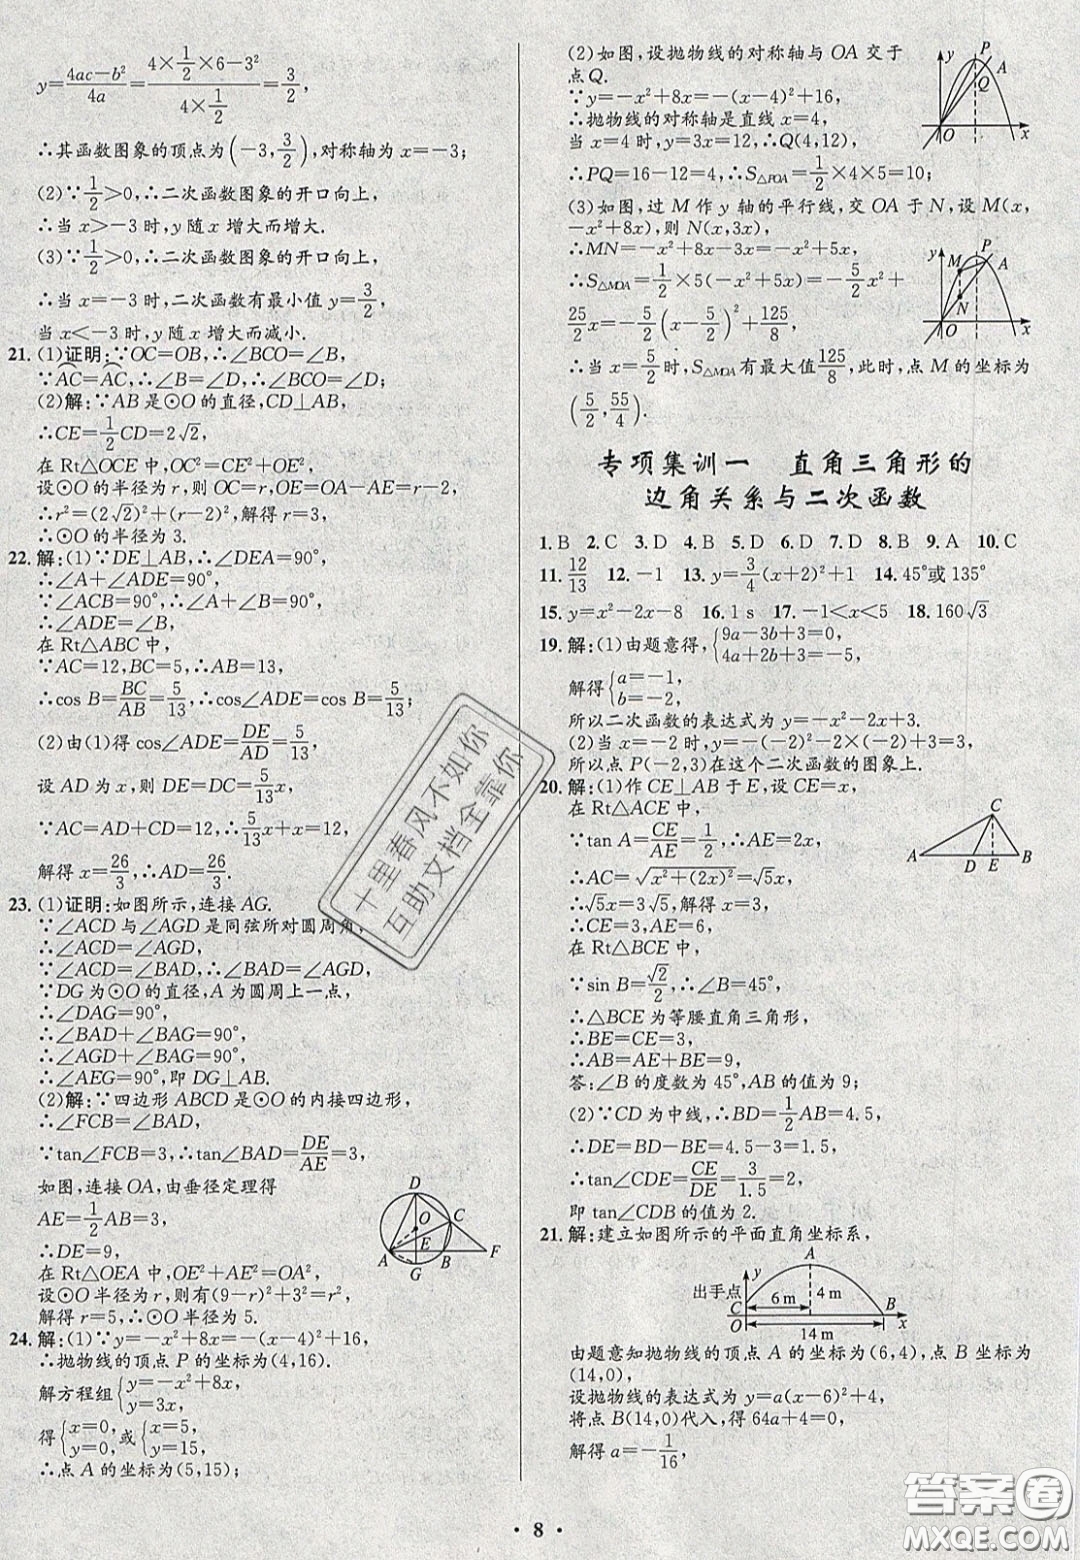 y=\frac{4ac-b²}{4a}=\frac{4×\frac{1}{2}×6-3²}{4×\frac{1}{2}}=\frac{3}{2},
∴其函数图象的顶点为(-3,\frac{3}{2}),对称轴为x=-3;
(2)∵\frac{1}{2}>0,∴二次函数图象的开口向上,
∴当x>-3时,y随x增大而增大.
(3)∵\frac{1}{2}>0,∴二次函数图象的开口向上,
∴当x=-3时,二次函数有最小值y=\frac{3}{2},
当x<-3时,y随x增大而减小.
21.(1)证明:∵OC=OB,∴∠BCO=∠B,
∵⌒AC=⌒AC,∴∠B=∠D,∴∠BCO=∠D;
(2)解:∵AB是⊙O的直径,CD⊥AB,
∴CE=\frac{1}{2}CD=2√2,
在Rt△OCE中,OC²=CE²+OE²,
设⊙O的半径为r,则OC=r,OE=OA-AE=r-2,
∴r²=(2√2)²+(r-2)²,解得r=3,
∴⊙O的半径为3.
22.解:(1)∵DE⊥AB,∴∠DEA=90°,
∴∠A+∠ADE=90°,
∵∠ACB=90°,∴∠A+∠B=90°,
∴∠ADE=∠B,
在Rt△ABC中,
∵AC=12,BC=5,∴AB=13,
∴cos B=\frac{BC}{AB}=\frac{5}{13},∴cos∠ADE=cos B=\frac{5}{13}.
(2)由(1)得cos∠ADE=\frac{DE}{AD}=\frac{5}{13},
设AD为x,则DE=DC=\frac{5}{13}x,
∵AC=AD+CD=12,∴\frac{5}{13}x+x=12,
解得x=\frac{26}{3},∴AD=\frac{26}{3}.
23.(1)证明:如图所示,连接AG.
∵∠ACD与∠AGD是同弦所对圆周角,
∴∠ACD=∠AGD,
∵∠ACD=∠BAD,∴∠BAD=∠AGD,
∵DG为⊙O的直径,A为圆周上一点,
∴∠DAG=90°,
∴∠BAD+∠BAG=90°,
∴∠AGD+∠BAG=90°,
∴∠AEG=90°,即DG⊥AB.
(2)解:∵四边形ABCD是⊙O的内接四边形,
∴∠FCB=∠BAD,
∵tan∠FCB=3,∴tan∠BAD=\frac{DE}{AE}=3,
如图,连接OA,由垂径定理得
AE=\frac{1}{2}AB=3,
∴DE=9,
在Rt△OEA中,OE²+AE²=OA²,
设⊙O半径为r,则有(9-r)²+3²=r²,
解得r=5,∴⊙O半径为5.
D
O
C
A
E
B
F
G
24.解:(1)∵y=-x²+8x=-(x-4)²+16,
∴抛物线的顶点P的坐标为(4,16).
解方程组{y=-x²+8x, y=3x,
得{x=0, y=0,或{x=5, y=15,
∴点A的坐标为(5,15);
(2)如图,设抛物线的对称轴与OA交于
点Q.
∵y=-x²+8x=-(x-4)²+16,
∴抛物线的对称轴是直线x=4,
当x=4时,y=3x=12,∴Q(4,12),
∴PQ=16-12=4,∴S△POA=\frac{1}{2}×4×5=10;
y P A Q O x
(3)如图,过M作y轴的平行线,交OA于N,设M(x,
-x²+8x),则N(x,3x),
∴MN=-x²+8x-3x=-x²+5x,
∴S△MOA=\frac{1}{2}×5(-x²+5x)=-\frac{5}{2}x²+
\frac{25}{2}x=-\frac{5}{2}(x-\frac{5}{2})²+\frac{125}{8},
y P M A N O x
∴当x=\frac{5}{2}时,S△MOA有最大值\frac{125}{8},此时,点M的坐标为
(\frac{5}{2},\frac{55}{4}).
专项集训一 直角三角形的
边角关系与二次函数
1.B 2.C 3.D 4.B 5.D 6.D 7.D 8.B 9.A 10.C
11.\frac{12}{13} 12.-1 13.y=\frac{3}{4}(x+2)²+1 14.45°或135°
15.y=x²-2x-8 16.1 s 17.-1<x<5 18.160√3
19.解:(1)由题意得,{9a-3b+3=0, 4a+2b+3=-5,
解得{a=-1, b=-2,
所以二次函数的表达式为y=-x²-2x+3.
(2)当x=-2时,y=-(-2)²-2×(-2)+3=3,
所以点P(-2,3)在这个二次函数的图象上.
20.解:(1)作CE⊥AB于E,设CE=x,
在Rt△ACE中,
∵tan A=\frac{CE}{AE}=\frac{1}{2},∴AE=2x,
∴AC=√(x²+(2x)²)=√5x,
∴√5x=3√5,解得x=3,
∴CE=3,AE=6,
在Rt△BCE中,
∵sin B=\frac{√2}{2},∴∠B=45°,
∴△BCE为等腰直角三角形,
∴BE=CE=3,
∴AB=AE+BE=9,
答:∠B的度数为45°,AB的值为9;
C
A D E B
(2)∵CD为中线,∴BD=\frac{1}{2}AB=4.5,
∴DE=BD-BE=4.5-3=1.5,
∴tan∠CDE=\frac{CE}{DE}=\frac{3}{1.5}=2,
即tan∠CDB的值为2.
21.解:建立如图所示的平面直角坐标系,
A
出手点 y
C 6 m 4 m B
O 14 m x
由题意知抛物线的顶点A的坐标为(6,4),点B的坐标为
(14,0),
设抛物线的表达式为y=a(x-6)²+4,
将点B(14,0)代入,得64a+4=0,
解得a=-\frac{1}{16},
十里春风不如你
互助文档全靠你
· 8 ·
答案圈
MXQE.COM